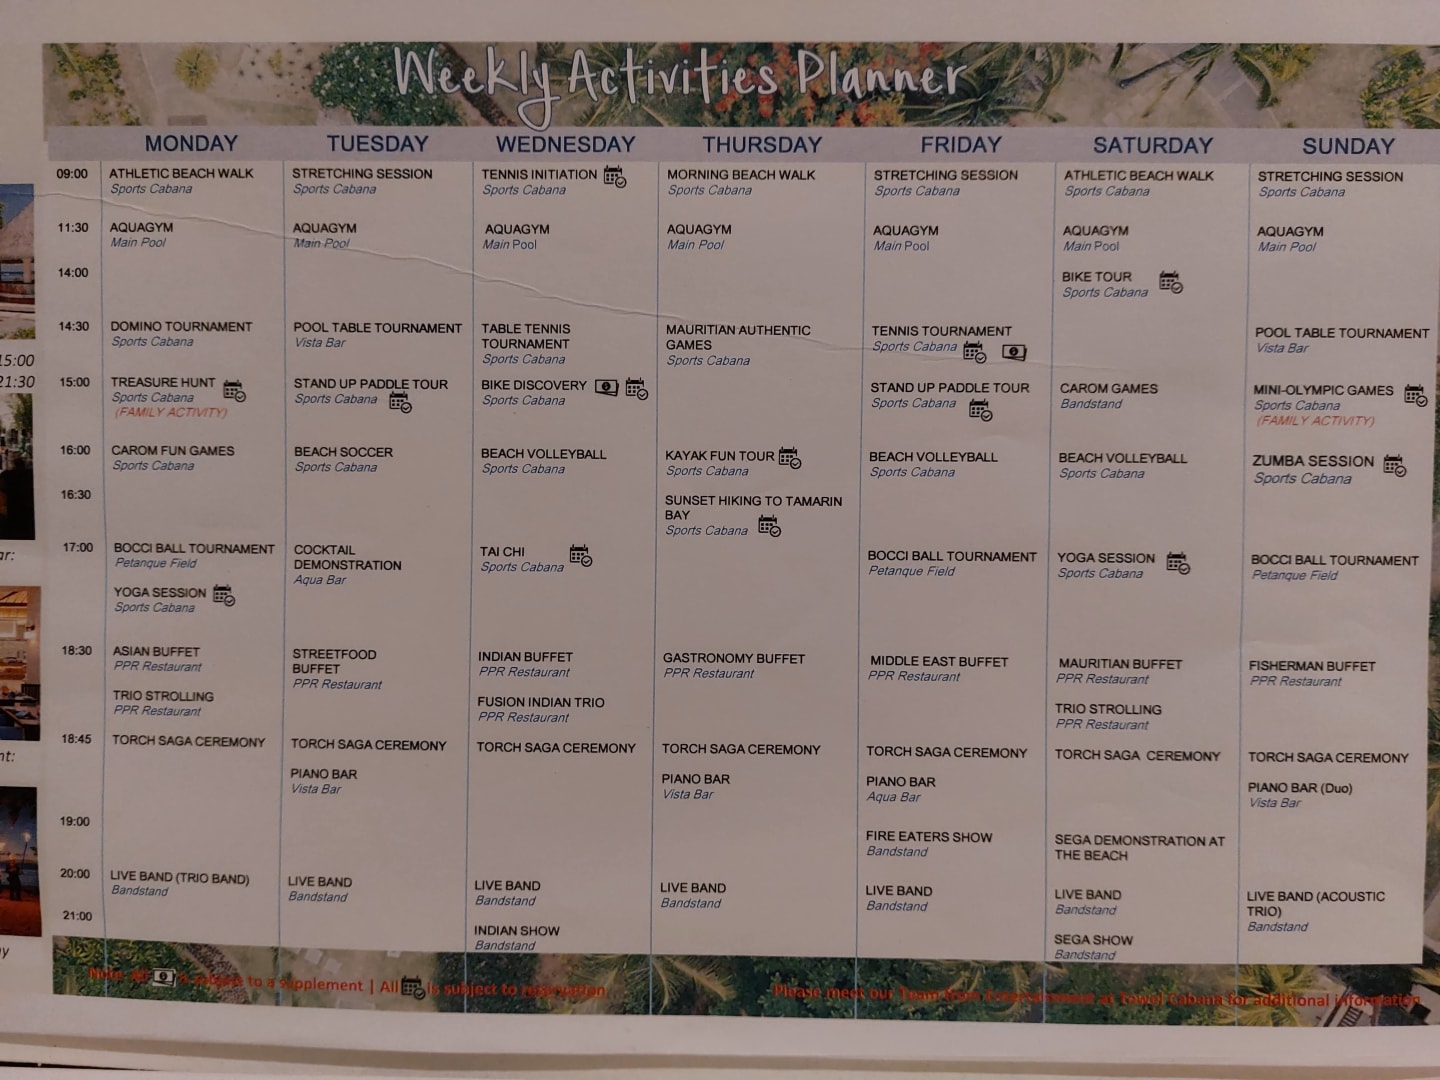 Weekly Activities Planner
MONDAY TUESDAY WEDNESDAY THURSDAY FRIDAY SATURDAY SUNDAY
09:00 ATHLETIC BEACH WALK STRETCHING SESSION TENNIS INITIATION MORNING BEACH WALK STRETCHING SESSION ATHLETIC BEACH WALK STRETCHING SESSION
Sports Cabana Sports Cabana Sports Cabana Sports Cabana Sports Cabana Sports Cabana Sports Cabana
11:30 AQUAGYM AQUAGYM AQUAGYM AQUAGYM AQUAGYM AQUAGYM AQUAGYM
Main Pool Main Pool Main Pool Main Pool Main Pool Main Pool Main Pool
14:00 BIKE TOUR
Sports Cabana
14:30 DOMINO TOURNAMENT POOL TABLE TOURNAMENT TABLE TENNIS MAURITIAN AUTHENTIC TENNIS TOURNAMENT POOL TABLE TOURNAMENT
Sports Cabana Vista Bar TOURNAMENT GAMES Sports Cabana Vista Bar
Sports Cabana Sports Cabana
15:00
21:30
15:00 TREASURE HUNT STAND UP PADDLE TOUR BIKE DISCOVERY STAND UP PADDLE TOUR CAROM GAMES MINI-OLYMPIC GAMES
Sports Cabana Sports Cabana Sports Cabana Sports Cabana Bandstand Sports Cabana
(FAMILY ACTIVITY) (FAMILY ACTIVITY)
16:00 CAROM FUN GAMES BEACH SOCCER BEACH VOLLEYBALL KAYAK FUN TOUR BEACH VOLLEYBALL BEACH VOLLEYBALL ZUMBA SESSION
Sports Cabana Sports Cabana Sports Cabana Sports Cabana Sports Cabana Sports Cabana Sports Cabana
16:30 SUNSET HIKING TO TAMARIN
BAY
Sports Cabana
17:00 BOCCI BALL TOURNAMENT COCKTAIL TAI CHI BOCCI BALL TOURNAMENT YOGA SESSION BOCCI BALL TOURNAMENT
Petanque Field DEMONSTRATION Sports Cabana Petanque Field Sports Cabana Petanque Field
Aqua Bar
YOGA SESSION
Sports Cabana
18:30 ASIAN BUFFET STREETFOOD INDIAN BUFFET GASTRONOMY BUFFET MIDDLE EAST BUFFET MAURITIAN BUFFET FISHERMAN BUFFET
PPR Restaurant BUFFET PPR Restaurant PPR Restaurant PPR Restaurant PPR Restaurant PPR Restaurant
PPR Restaurant
TRIO STROLLING FUSION INDIAN TRIO TRIO STROLLING
PPR Restaurant PPR Restaurant PPR Restaurant
18:45 TORCH SAGA CEREMONY TORCH SAGA CEREMONY TORCH SAGA CEREMONY TORCH SAGA CEREMONY TORCH SAGA CEREMONY TORCH SAGA CEREMONY TORCH SAGA CEREMONY
PIANO BAR PIANO BAR PIANO BAR PIANO BAR (Duo)
Vista Bar Vista Bar Aqua Bar Vista Bar
19:00 FIRE EATERS SHOW SEGA DEMONSTRATION AT
Bandstand THE BEACH
20:00 LIVE BAND (TRIO BAND) LIVE BAND LIVE BAND LIVE BAND LIVE BAND LIVE BAND LIVE BAND (ACOUSTIC
Bandstand Bandstand Bandstand Bandstand Bandstand Bandstand TRIO)
Bandstand
21:00 INDIAN SHOW SEGA SHOW
Bandstand Bandstand
Note: All is subject to a supplement | All is subject to reservation
Please meet our Team from Entertainment at Towel Cabana for additional information